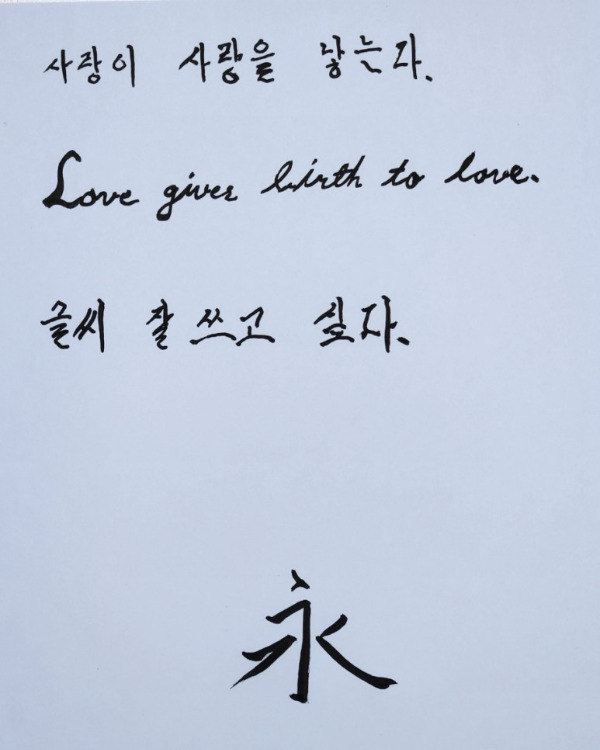 사랑이 사랑을 낳는다.
Love gives birth to love.
글씨 잘 쓰고 싶다.
永